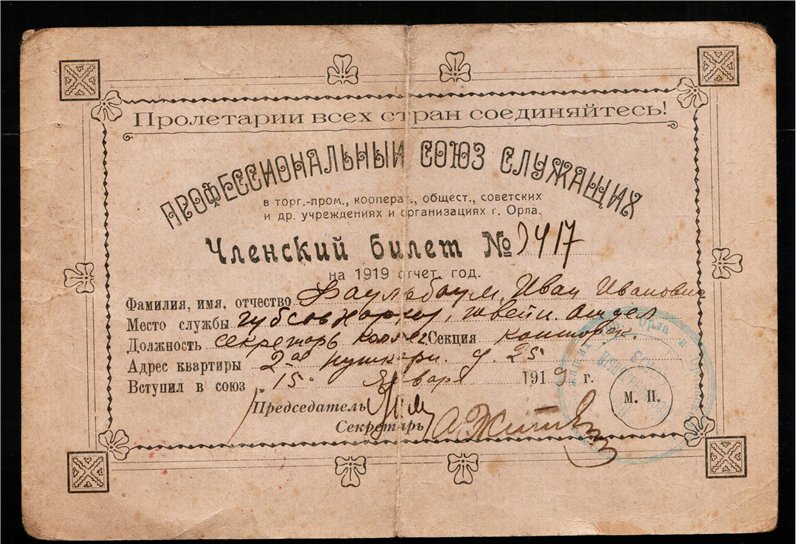 Пролетарии всех стран соединяйтесь!
ПРОФЕССИОНАЛЬНЫЙ СОЮЗ СЛУЖАЩИХ
в торг.-пром., кооперат., общест., советских
и др. учреждениях и организациях г. Орла.
Членский билет № 9417
на 1919 отчет. год.
Фамилия, имя, отчество Иван Иванович
Место службы швейн. отдел
Должность секретарь Секция
Адрес квартиры 2ая пушкарн. д. 25
Вступил в союз 15 Января 1919 г.
Председатель
М. П.
Секретарь